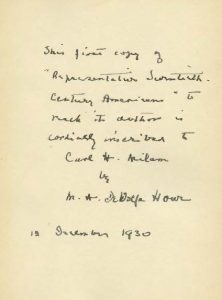 This first copy of
"Representative Twentieth-
Century Americans" to
reach its author is
cordially inscribed to
Carl H. Milam
by
M. A. DeWolfe Howe
19 December 1930